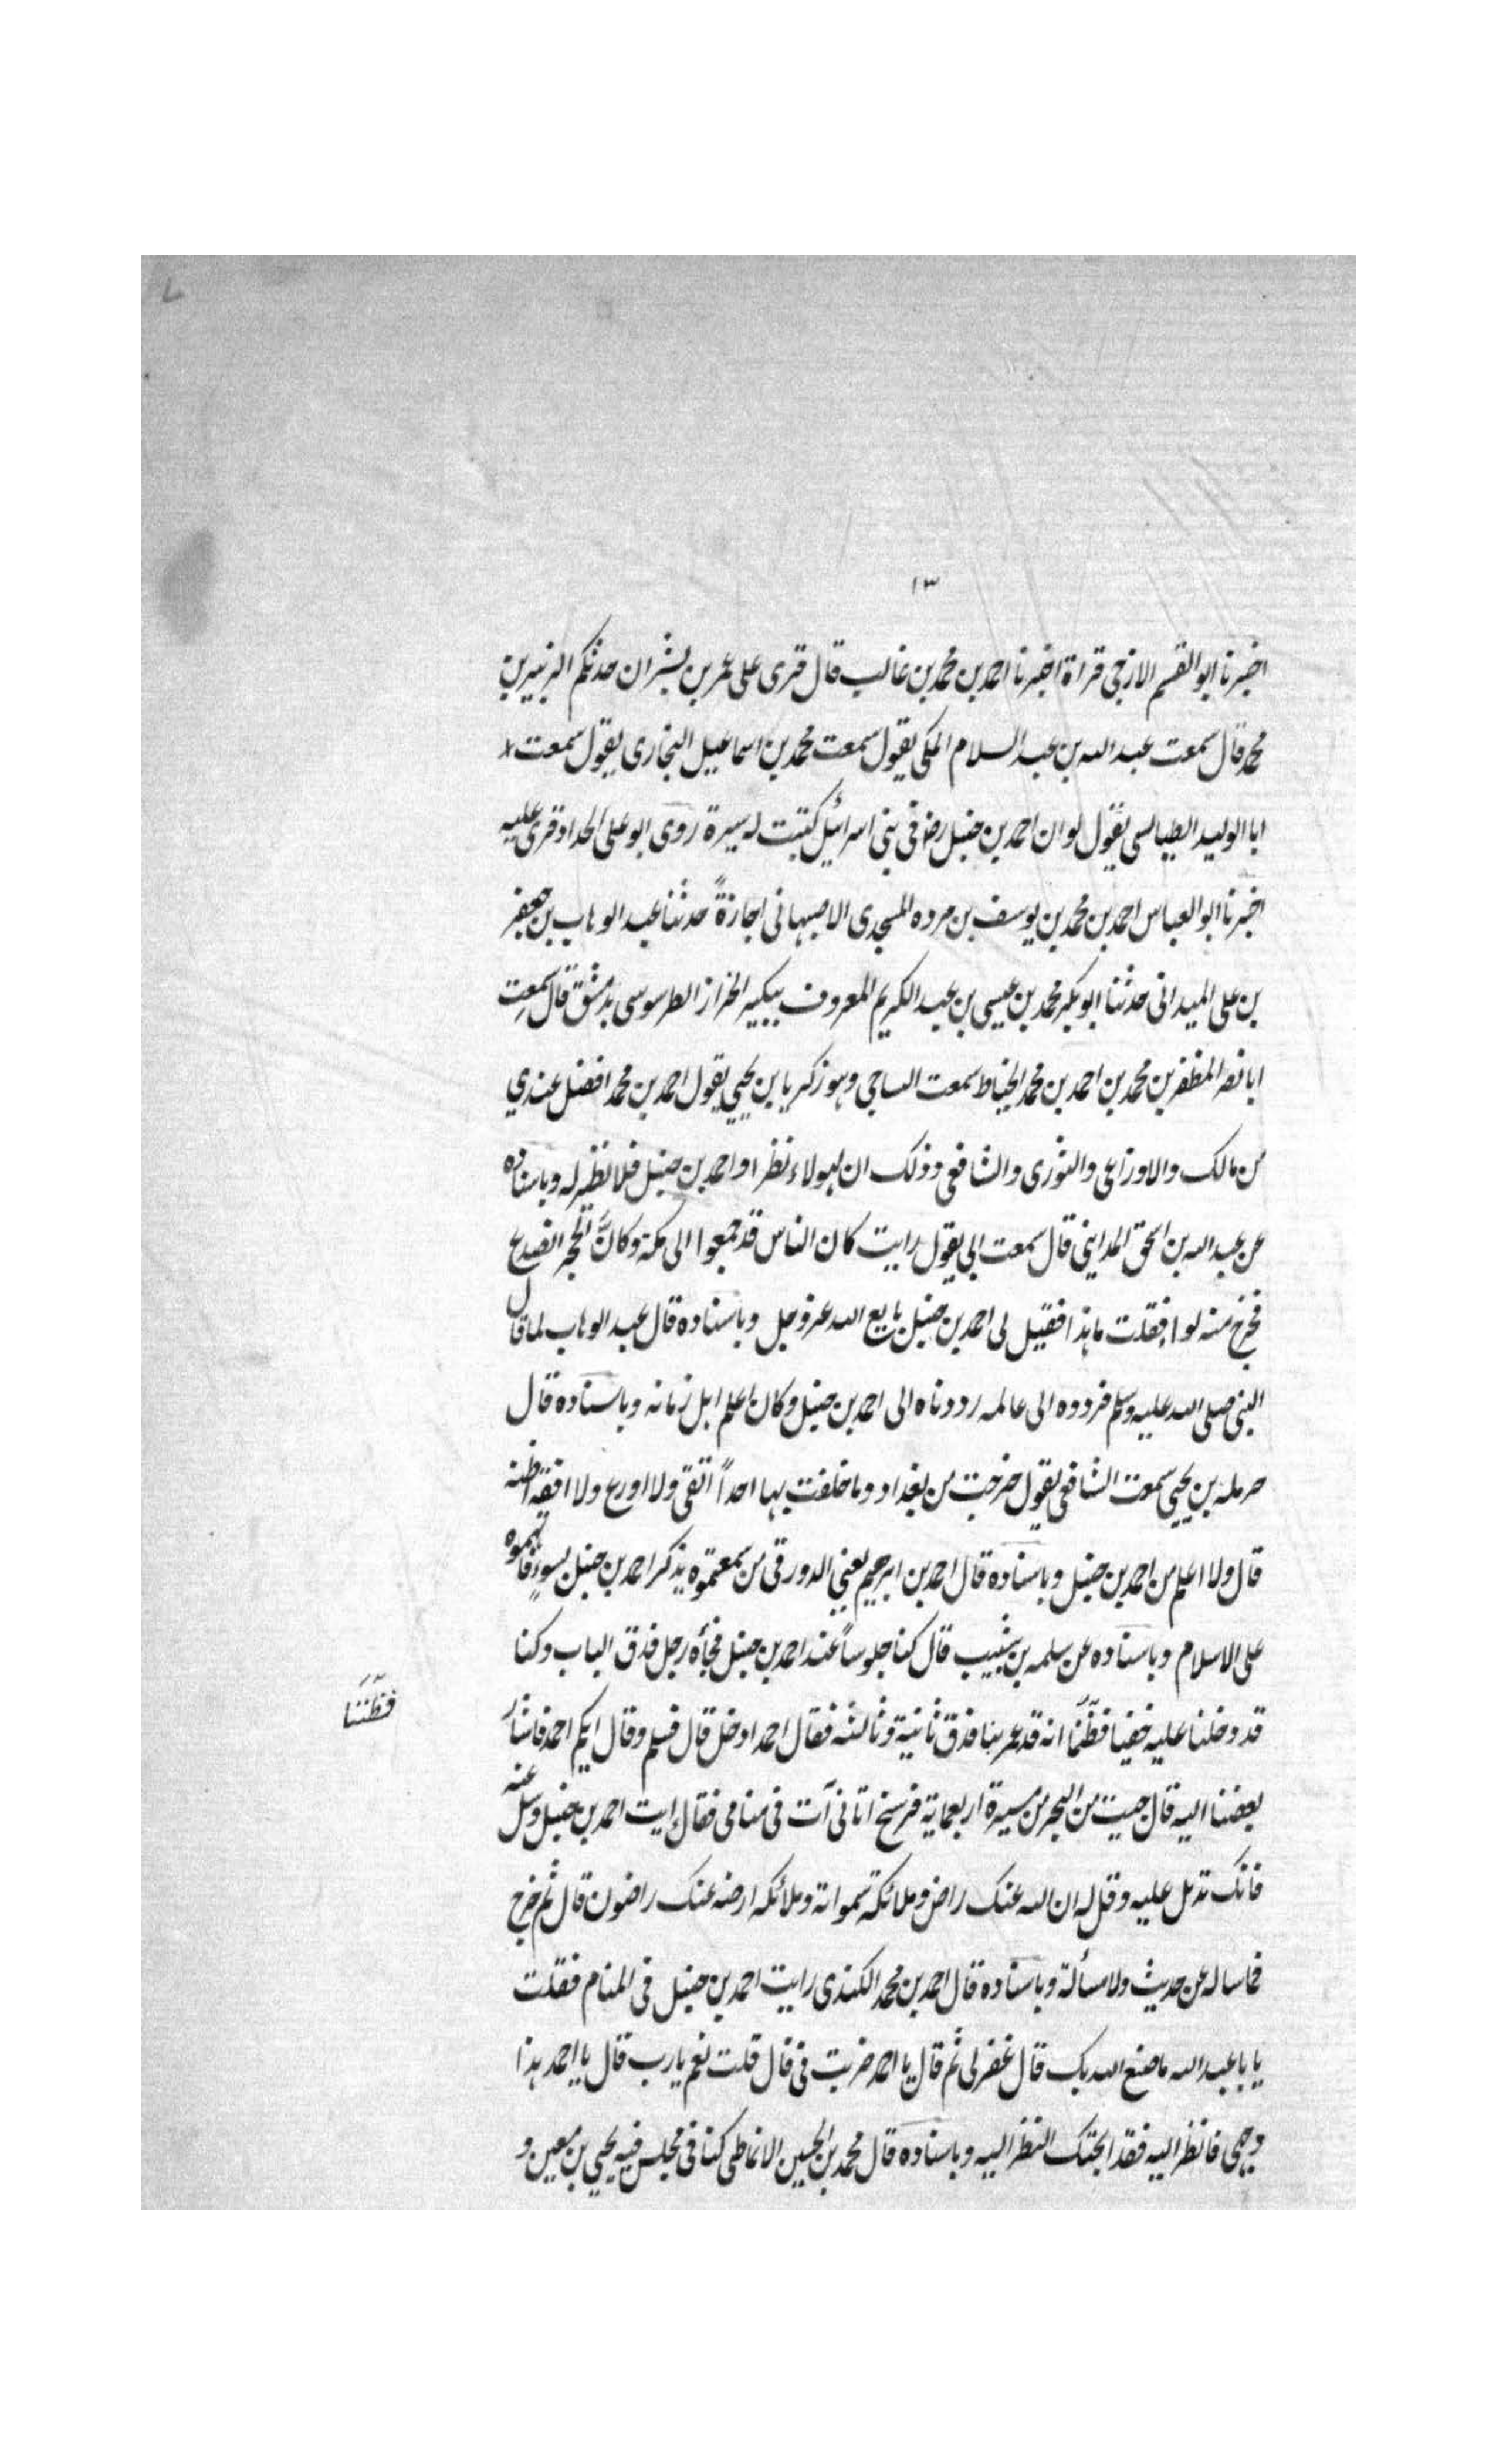 ١٣
اخبرنا ابو القسم الازجی قراة اخبرنا احمد بن محمد بن غالب قال قری علی عمر بن بشران حدثکم الزبیر بن
محمد قال سمعت عبد الله بن عبد السلام المکی یقول سمعت محمد بن اسماعیل البخاری یقول سمعت
ابا الولید الطیالسی یقول لو ان احمد بن حنبل رض فی بنی اسرائیل کتبت له سیرة روی ابو علی الحداد قری علیه
اخبرنا ابو العباس احمد بن محمد بن یوسف بن مرده المسجدی الاصبهانی اجازةً حدثنا عبد الوهاب بن جعفر
بن علی المیدانی حدثنا ابو بکر محمد بن عیسی بن عبد الکریم المعروف ببکیر الخزاز الطرسوسی بدمشق قال سمعت
ابا نصر المظفر بن محمد بن احمد بن محمد الخیاط سمعت الساجی وهو زکریا بن یحیی یقول احمد بن محمد افضل عندی
من مالک والاوزاعی والثوری والشافعی وذلک ان لهولاء نظرا واحمد بن حنبل فلا نظیر له وباسناده
عن عبد الله بن اسحق المداینی قال سمعت ابی یقول رایت کان الناس قد جمعوا الی مکة وکانَّ الحجر انصدع
فخرج منه لواء فقلت ما هذا فقیل لی احمد بن حنبل بایع الله عز وجل وباسناده قال عبد الوهاب لما قال
النبی صلی الله علیه وسلم فردوه الی عالمه رددناه الی احمد بن حنبل وکان اعلم اهل زمانه وباسناده قال
حرملة بن یحیی سمعت الشافعی یقول خرجت من بغداد وما خلفت بها احداً اتقی ولا اورع ولا افقه اظنه
قال ولا اعلم من احمد بن حنبل وباسناده قال احمد بن ابرهیم یعنی الدورقی من سمعتموه یذکر احمد بن حنبل بسوءٍ فاتهموه
علی الاسلام وباسناده عن سلمه بن شبیب قال کنا جلوساً عند احمد بن حنبل فجأه رجل فدق الباب وکنا
قد دخلنا علیه خفیا فظنَنّا انه قد غمر بنا فدق ثانیة وثالثه فقال احمد ادخل قال فسلم وقال ایکم احمد فاشار
فظنَنَّا
بعضنا الیه قال جیت من البحر من مسیرة اربعمایة فرسخ اتانی آت فی منامی فقال ایت احمد بن حنبل وسل عنه
فانک تدل علیه وقل له ان الله عنک راض وملائکة سمواته وملائکه ارضه عنک راضون قال ثم خرج
فما ساله عن حدیث ولا مسألة وباسناده قال احمد بن محمد الکندی رایت احمد بن حنبل فی المنام فقلت
یا با عبد الله ما صنع الله بک قال غفر لی ثم قال یا احمد ضربت فی قال قلت نعم یا رب قال یا احمد هذا
وجهی فانظر الیه فقد ابحتک النظر الیه وباسناده قال محمد بن الحسین الانماطی کنا فی مجلس فیه یحیی بن معین و